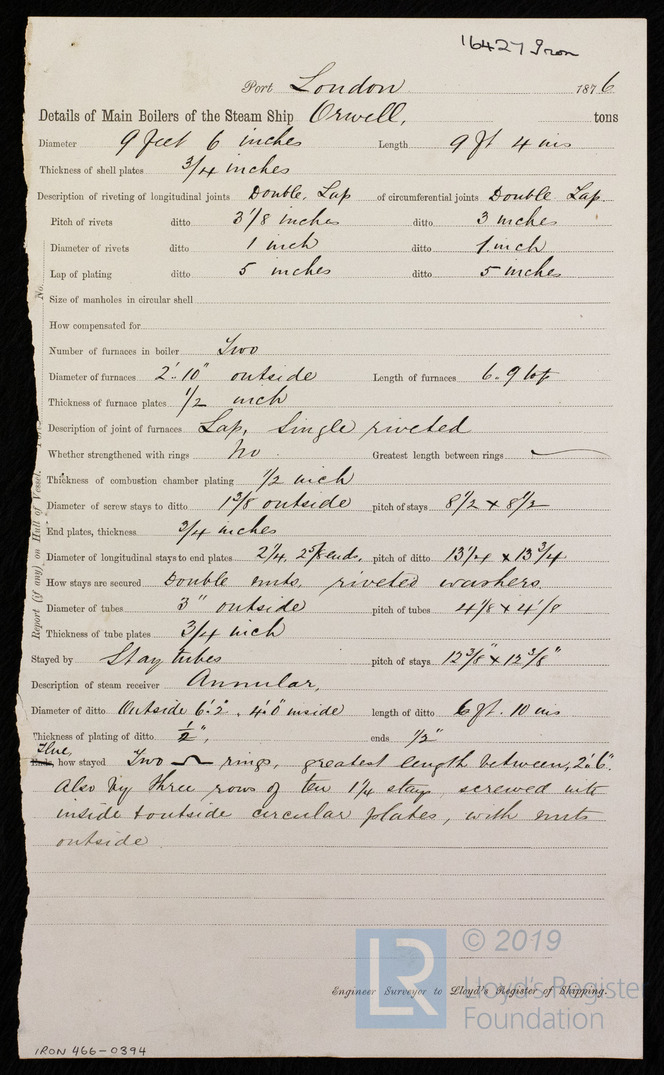 16427 Iron
Port London 1876
Details of Main Boilers of the Steam Ship Orwell, tons
Diameter 9 feet 6 inches Length 9 ft 4 ins
Thickness of shell plates 3/4 inches
Description of riveting of longitudinal joints Double, Lap of circumferential joints Double Lap
Pitch of rivets ditto 3 1/8 inches ditto 3 inches
Diameter of rivets ditto 1 inch ditto 1 inch
Lap of plating ditto 5 inches ditto 5 inches
Size of manholes in circular shell
How compensated for
Number of furnaces in boiler Two
Diameter of furnaces 2'.10" outside Length of furnaces 6.9 top
Thickness of furnace plates 1/2 inch
Description of joint of furnaces Lap, Single riveted
Whether strengthened with rings No Greatest length between rings
Thickness of combustion chamber plating 1/2 inch
Diameter of screw stays to ditto 1 3/8 outside pitch of stays 8 1/2 x 8 1/2
End plates, thickness 3/4 inches
Diameter of longitudinal stays to end plates 2 1/4, 2 5/8 ends, pitch of ditto 13 1/4 x 13 3/4
How stays are secured Double nuts, riveted washers
Diameter of tubes 3" outside pitch of tubes 4 1/8 x 4 1/8
Thickness of tube plates 3/4 inch
Stayed by Stay tubes pitch of stays 12 3/8" x 12 3/8"
Description of steam receiver Annular,
Diameter of ditto Outside 6'.2", 4'.0" inside length of ditto 6 ft. 10 ins
Thickness of plating of ditto 1/2", ends 1/2"
Flue,
Ends, how stayed Two rings, greatest length between, 2'.6".
Also by three rows of ten 1 1/4 stays screwed into
inside & outside circular plates, with nuts
outside
Engineer Surveyor to Lloyd's Register of Shipping.
Report (if any) on Hull of Vessel. No.
IRON 466-0394
LR
© 2019
Lloyd's Register
Foundation